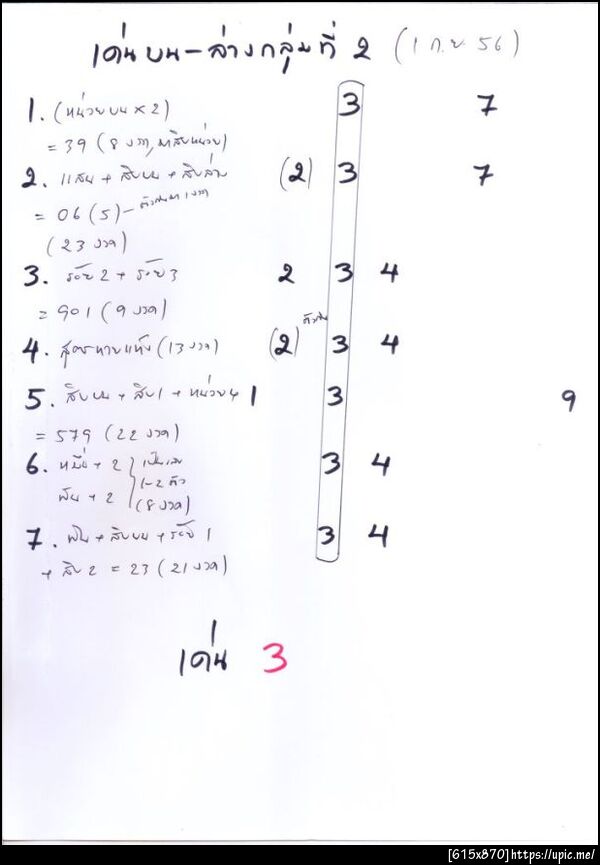 เด่นบน-ล่างกลุ่มที่ 2 (1 ก.ย. 56)
1. (หน่วยบน x 2) 3 7
= 39 (8 งวด, มาสิบหน่วย)
2. แสน + สิบบน + สิบล่าง (2) 3 7
= 06 (5) - งวด
(23 งวด)
3. ร้อย 2 + ร้อย 3 2 3 4
= 901 (9 งวด)
4. สูตรทายแห้ง (13 งวด) (2) 3 4
5. สิบบน + สิบ 1 + หน่วย 4 1 3 9
= 579 (22 งวด)
6. หมื่น + 2 3 4
พัน + 2
1-2 ตัว
(8 งวด)
7. พัน + สิบบน + ร้อย 1 3 4
+ สิบ 2 = 23 (21 งวด)
เด่น 3
[615x870]https://upic.me/